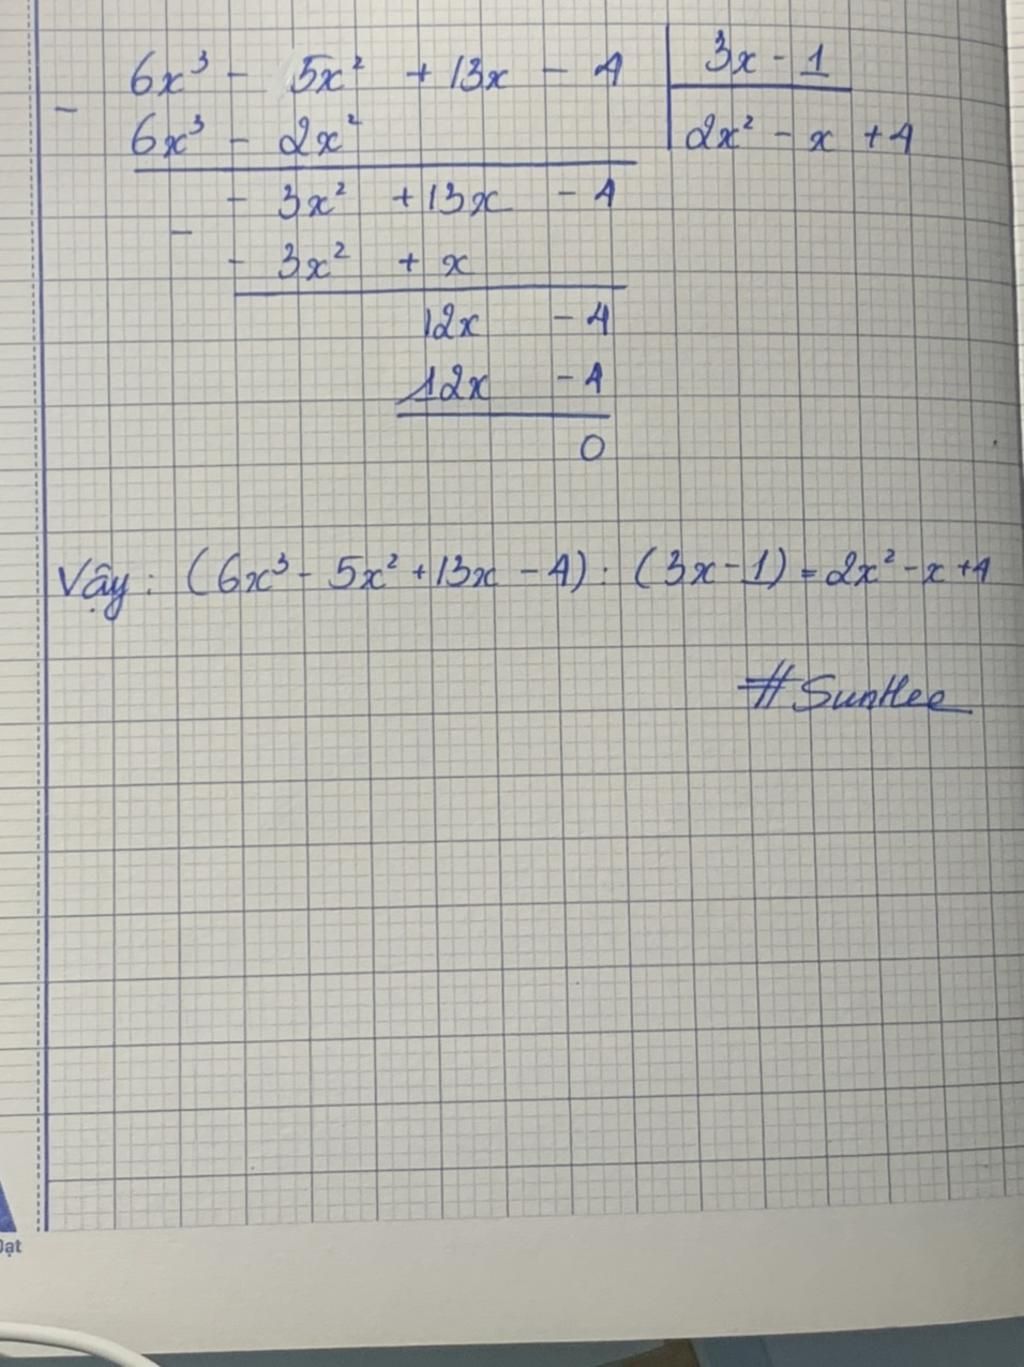 6x³ - 5x² + 13x - 4 | 3x - 1
- 6x³ - 2x² | 2x² - x + 4
- 3x² + 13x - 4
- - 3x² + x
12x - 4
12x - 4
0
Vậy : (6x³ - 5x² + 13x - 4) : (3x - 1) = 2x² - x + 4
#SunHee
Đạt